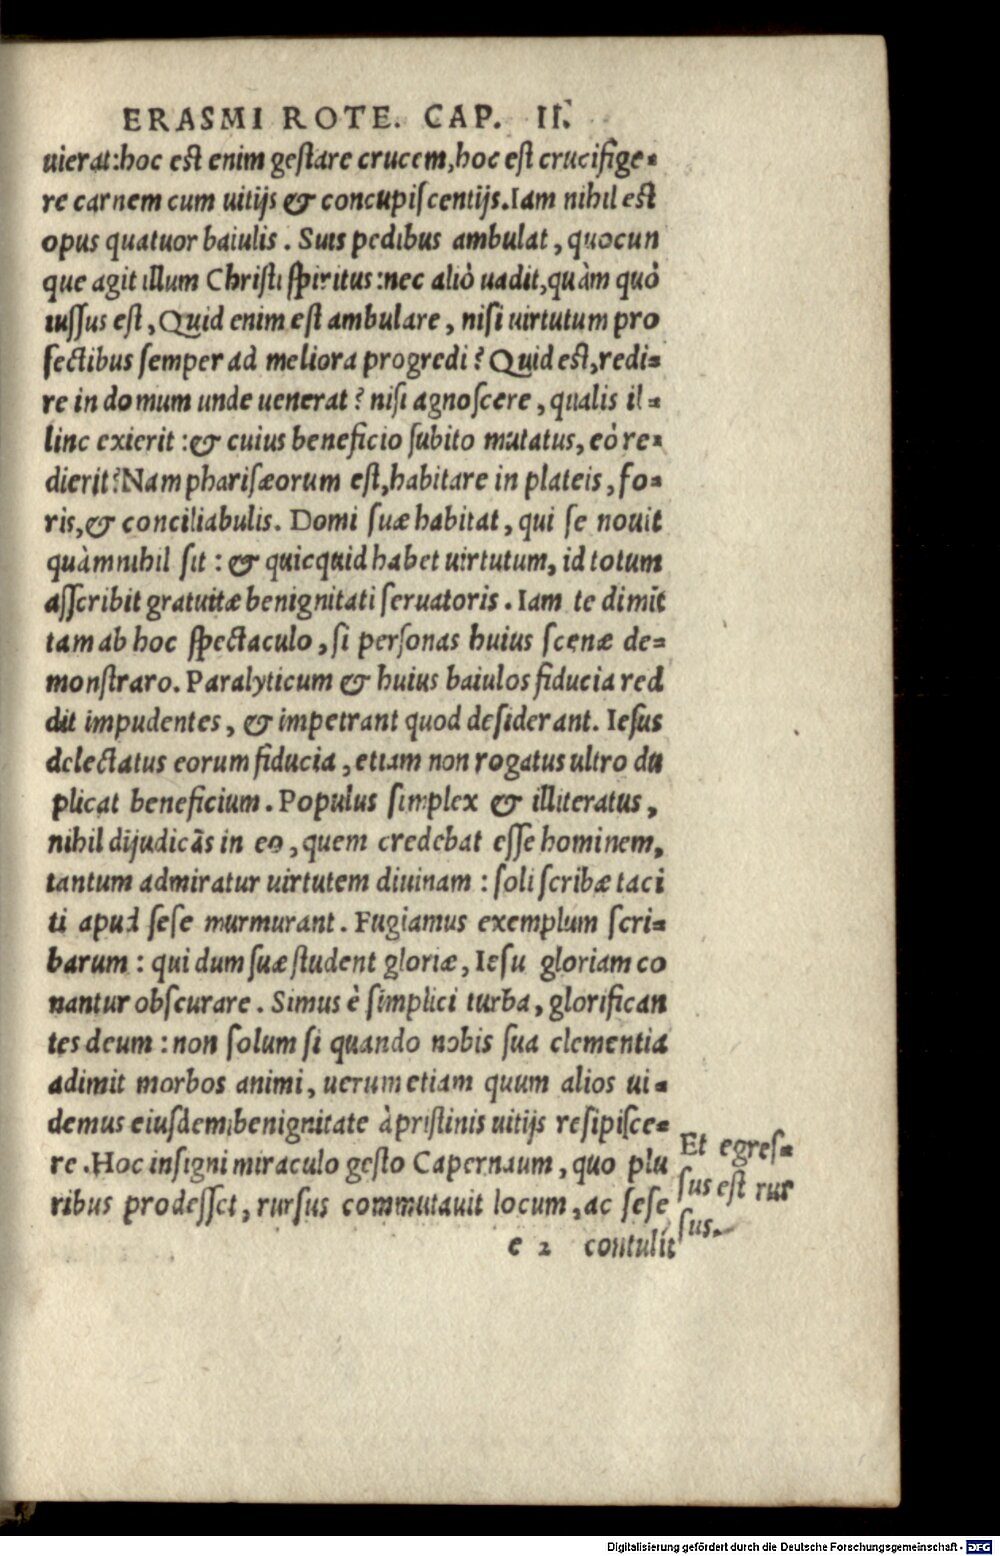 ERASMI ROTE. CAP. II.
uierat:hoc est enim gestare crucem,hoc est crucifige-
re carnem cum uitijs & concupiscentijs.Iam nihil est
opus quatuor baiulis. Suis pedibus ambulat, quocun
que agit illum Christi spiritus:nec aliò uadit,quàm quò
iussus est, Quid enim est ambulare, nisi uirtutum pro
fectibus semper ad meliora progredi? Quid est,redi-
re in domum unde uenerat? nisi agnoscere, qualis il-
linc exierit:& cuius beneficio subito mutatus, eò re-
dierit?Nam pharisæorum est,habitare in plateis, fo-
ris,& conciliabulis. Domi suæ habitat, qui se nouit
quàm nihil sit: & quicquid habet uirtutum, id totum
asscribit gratuitæ benignitati seruatoris. Iam te dimit
tam ab hoc spectaculo, si personas huius scenæ de-
monstraro. Paralyticum & huius baiulos fiducia red
dit impudentes, & impetrant quod desiderant. Iesus
delectatus eorum fiducia, etiam non rogatus ultro du
plicat beneficium. Populus simplex & illiteratus,
nihil dijudicãs in eo, quem credebat esse hominem,
tantum admiratur uirtutem diuinam: soli scribæ taci
ti apud sese murmurant. Fugiamus exemplum scri-
barum: qui dum suæ student gloriæ, Iesu gloriam co
nantur obscurare. Simus è simplici turba, glorifican
tes deum: non solum si quando nobis sua clementia
adimit morbos animi, uerum etiam quum alios ui-
demus eiusdem benignitate à pristinis uitijs resipisce-
re. Hoc insigni miraculo gesto Capernaum, quo plu
ribus prodesset, rursus commutauit locum, ac sese
Et egres-
sus est rur
sus.
e 2 contulit
Digitalisierung gefördert durch die Deutsche Forschungsgemeinschaft - DFG